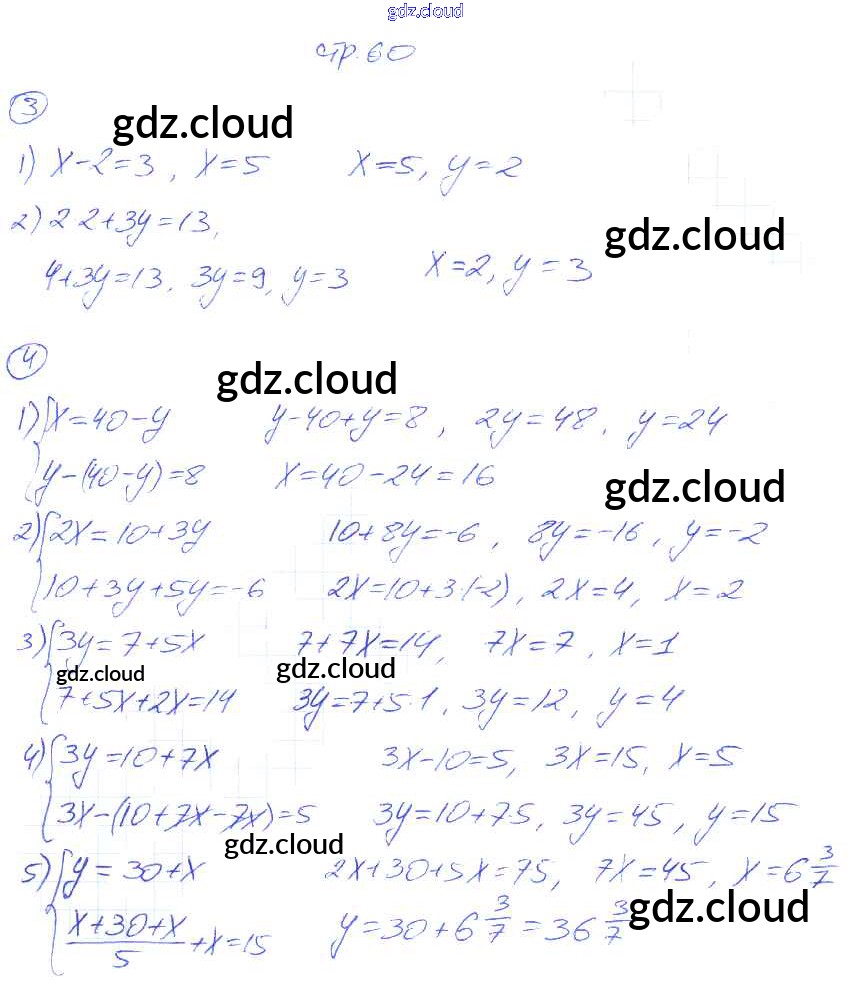 gdz.cloud
стр. 60
3
gdz.cloud
1) x-2=3, x=5 x=5, y=2
2) 2 2+3y=13,
gdz.cloud
4+3y=13, 3y=9, y=3 x=2, y=3
4
gdz.cloud
1) {x=40-y y-40+y=8, 2y=48, y=24
y-(40-y)=8 x=40-24=16
gdz.cloud
2) {2x=10+3y 10+8y=-6, 8y=-16, y=-2
10+3y+5y=-6 2x=10+3·(-2), 2x=4, x=2
3) {3y=7+5x 7+7x=14, 7x=7, x=1
gdz.cloud gdz.cloud
7+5x+2x=14 3y=7+5·1, 3y=12, y=4
4) {3y=10+7x 3x-10=5, 3x=15, x=5
3x-(10+7x-7x)=5 3y=10+75, 3y=45, y=15
gdz.cloud
5) {y=30+x 2x+30+5x=75, 7x=45, x=6 3/7
gdz.cloud
(x+30+x)/5+x=15 y=30+6 3/7=36 3/7